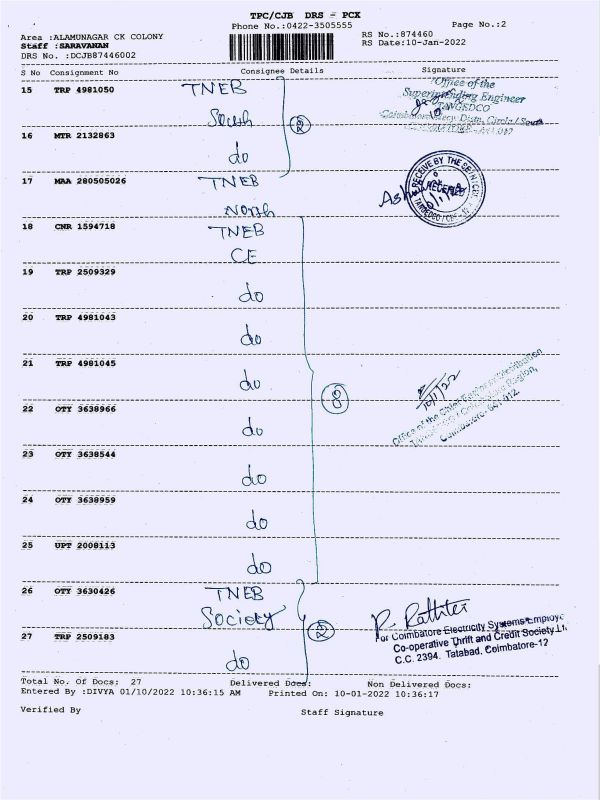 TPC/CJB DRS - PCX
Phone No.:0422-3505555
Page No.:2
Area :ALAMUNAGAR CK COLONY
RS No.:874460
Staff :SARAVANAN
RS Date:10-Jan-2022
DRS No. :DCJB87446002
S No Consignment No Consignee Details Signature
15 TRP 4981050 TNEB
South
②
Office of the
Superintending Engineer
TANGEDCO
16 MTR 2132863
do
17 MAA 280505026 TNEB
North
RECEIVE BY THE
RECEIVED
18 CNR 1594718 TNEB
CE
19 TRP 2509329
do
20 TRP 4981043
do
21 TRP 4981045
do
⑧
10/1/22
Office of the Chief Engineer/Distribution
Coimbatore Region,
Coimbatore- 641 012.
22 OTY 3638966
do
23 OTY 3638544
do
24 OTY 3638959
do
25 UPT 2008113
do
26 OTY 3630426 TNEB
Society
②
P. Rathter
For Coimbatore Electricity Systems Employe
Co-operative Thrift and Credit Society Lt
C.C. 2394. Tatabad, Coimbatore-12
27 TRP 2509183
do
Total No. Of Docs: 27 Delivered Docs: Non Delivered Docs:
Entered By :DIVYA 01/10/2022 10:36:15 AM Printed On: 10-01-2022 10:36:17
Verified By Staff Signature